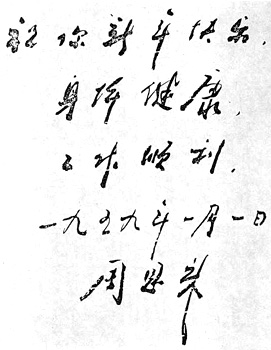 祝你新年快乐.
身体健康,
工作顺利.
一九五九年一月一日
周恩来